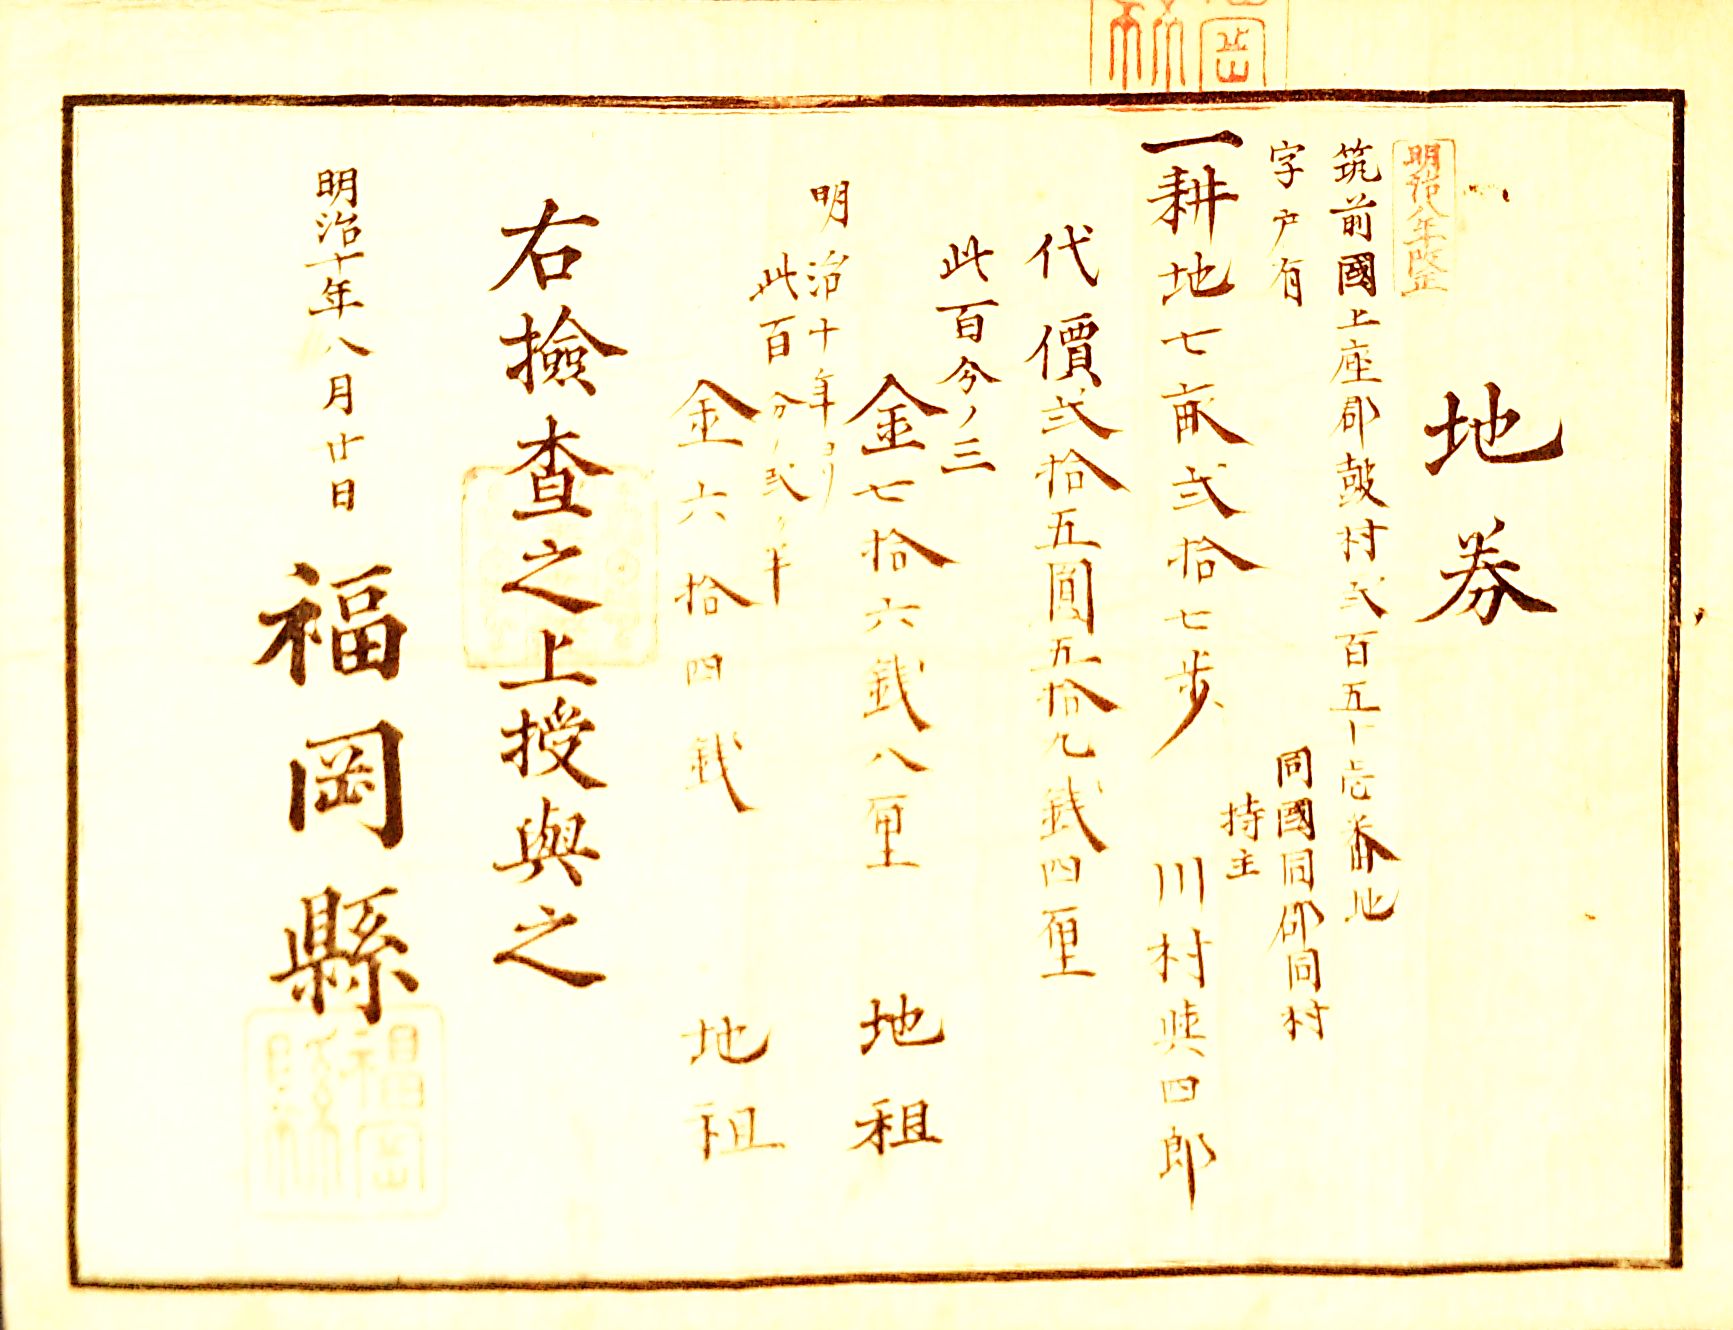 地券
明治八年改正
筑前國上座郡鼓村弐百五十壱番地
字戸有
同國同郡同村
持主
川村與四郎
一耕地七畝弐拾七歩
代價弐拾五圓五拾九銭四厘
此百分ノ三
金七拾六銭八厘
地租
明治十年ヨリ
此百分ノ弐ヶ半
金六拾四銭
地租
右撿査之上授與之
明治十年八月廿日
福岡縣
福岡縣